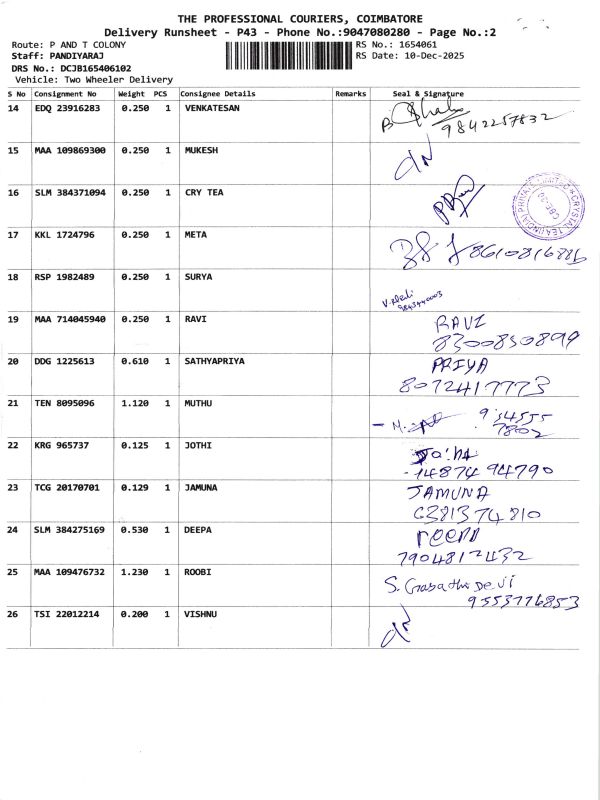 THE PROFESSIONAL COURIERS, COIMBATORE
Delivery Runsheet - P43 - Phone No.:9047080280 - Page No.:2
Route: P AND T COLONY
RS No.: 1654061
Staff: PANDIYARAJ
RS Date: 10-Dec-2025
DRS No.: DCJB165406102
Vehicle: Two Wheeler Delivery
S No Consignment No Weight PCS Consignee Details Remarks Seal & Signature
14 EDQ 23916283 0.250 1 VENKATESAN
9842257832
15 MAA 109869300 0.250 1 MUKESH
16 SLM 384371094 0.250 1 CRY TEA
17 KKL 1724796 0.250 1 META
8610816886
18 RSP 1982489 0.250 1 SURYA
19 MAA 714045940 0.250 1 RAVI
RAVI
8300850899
20 DDG 1225613 0.610 1 SATHYAPRIYA
PRIYA
8072417773
21 TEN 8095096 1.120 1 MUTHU
22 KRG 965737 0.125 1 JOTHI
14874 94790
23 TCG 20170701 0.129 1 JAMUNA
JAMUNA
6381374810
24 SLM 384275169 0.530 1 DEEPA
7904812432
25 MAA 109476732 1.230 1 ROOBI
9553776853
26 TSI 22012214 0.200 1 VISHNU